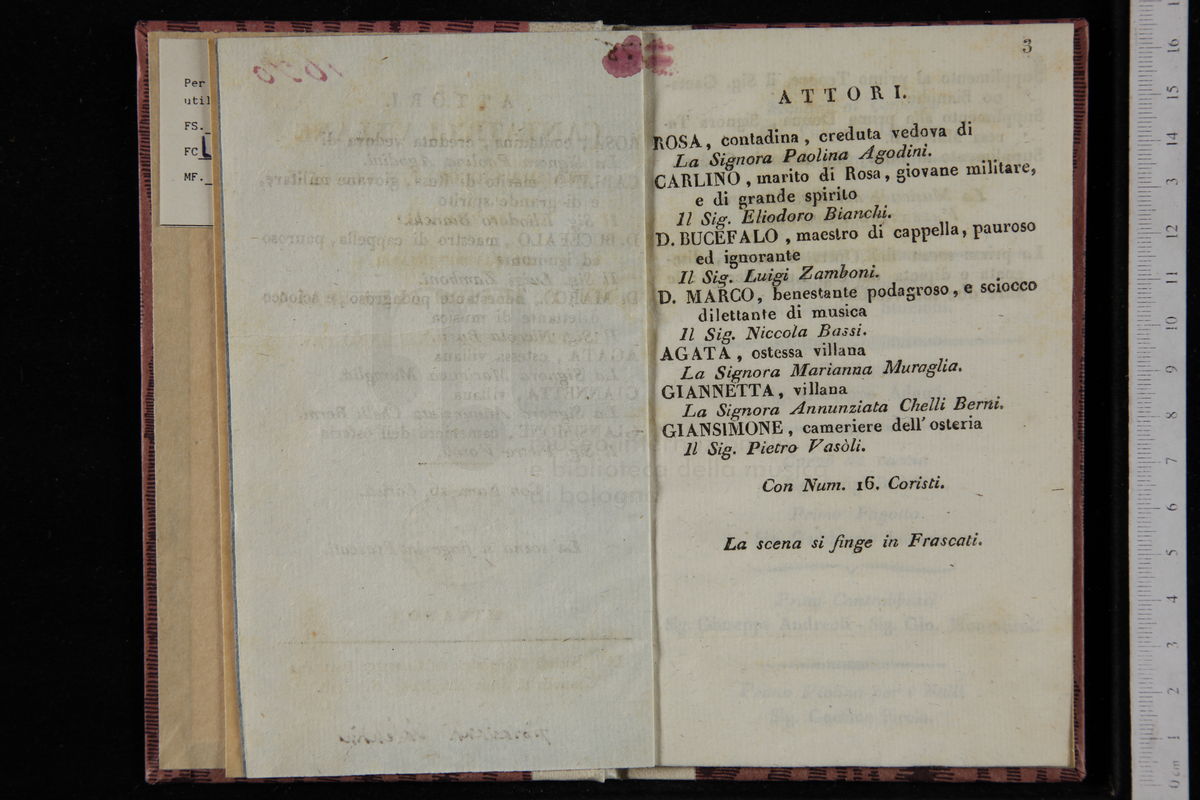 Per
util
FS.
FC
MF.
3
ATTORI.
ROSA, contadina, creduta vedova di
La Signora Paolina Agodini.
CARLINO, marito di Rosa, giovane militare,
e di grande spirito
Il Sig. Eliodoro Bianchi.
D. BUCEFALO, maestro di cappella, pauroso
ed ignorante
Il Sig. Luigi Zamboni.
D. MARCO, benestante podagroso, e sciocco
dilettante di musica
Il Sig. Niccola Bassi.
AGATA, ostessa villana
La Signora Marianna Muraglia.
GIANNETTA, villana
La Signora Annunziata Chelli Berni.
GIANSIMONE, cameriere dell' osteria
Il Sig. Pietro Vasòli.
e biblioteca della musica
di bologna
Con Num. 16. Coristi.
La scena si finge in Frascati.